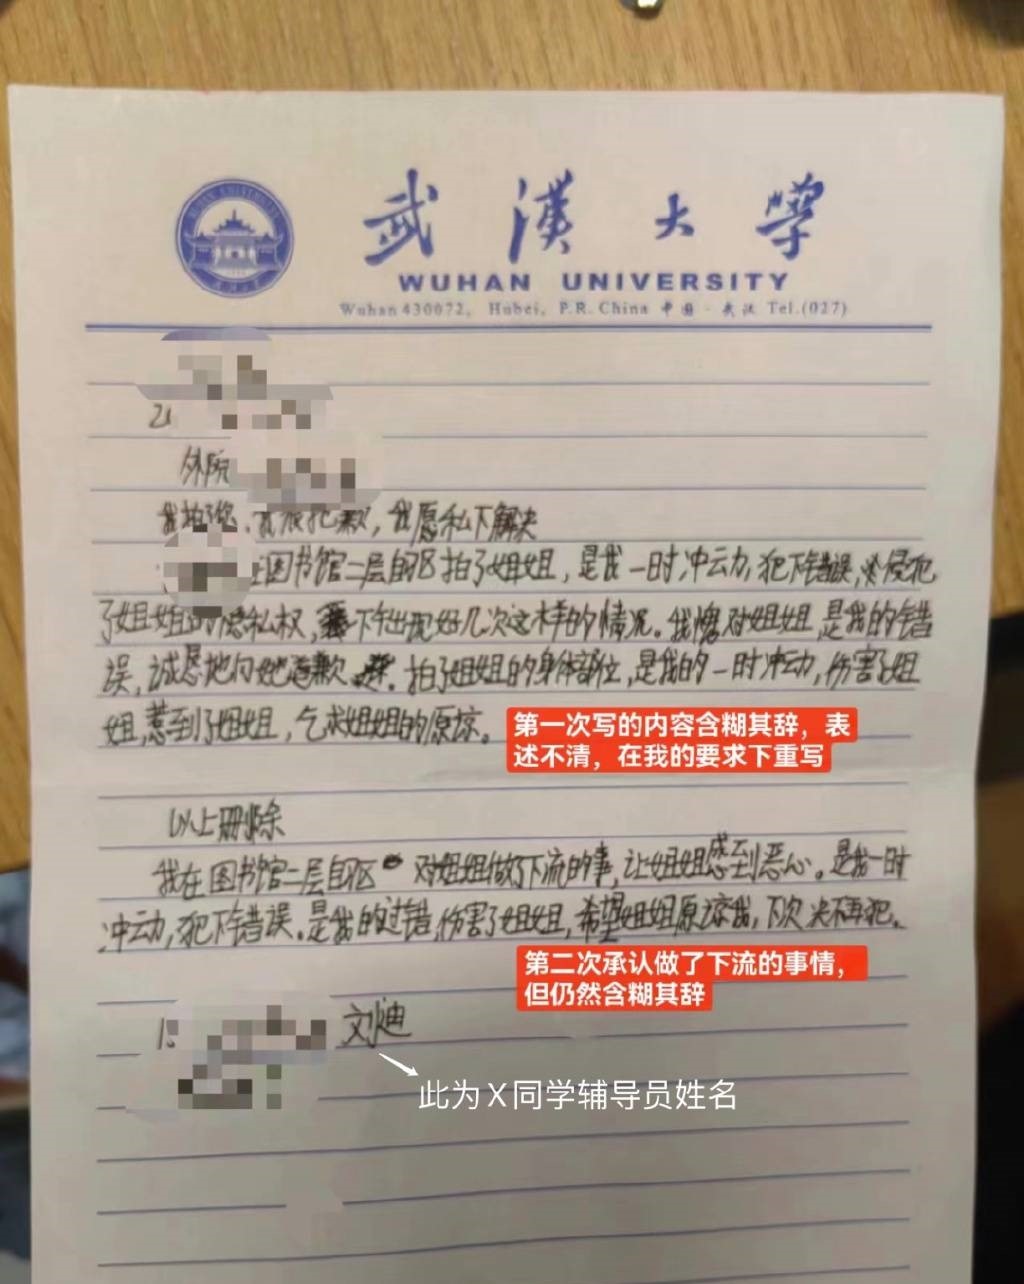 武漢大學
WUHAN UNIVERSITY
Wuhan 430072, Hubei, P.R. China 中国·武汉 Tel.(027)
外院
我拍了您,我很抱歉,我愿私下解决
在图书馆二层自区拍了姐姐,是我一时冲动,犯下错误,侵犯
了姐姐的隐私权,下午出现好几次这样的情况。我愧对姐姐,是我的错
误,诚恳地向她道歉。拍了姐姐的身体部位,是我的一时冲动,伤害了姐
姐,惹到了姐姐,乞求姐姐的原谅。
第一次写的内容含糊其辞,表
述不清,在我的要求下重写
以上删除
我在图书馆二层自区对姐姐做了下流的事,让姐姐感到恶心。是我一时
冲动,犯下错误。是我的过错,伤害了姐姐,希望姐姐原谅我,下次决不再犯。
第二次承认做了下流的事情,
但仍然含糊其辞
刘迪
此为X同学辅导员姓名